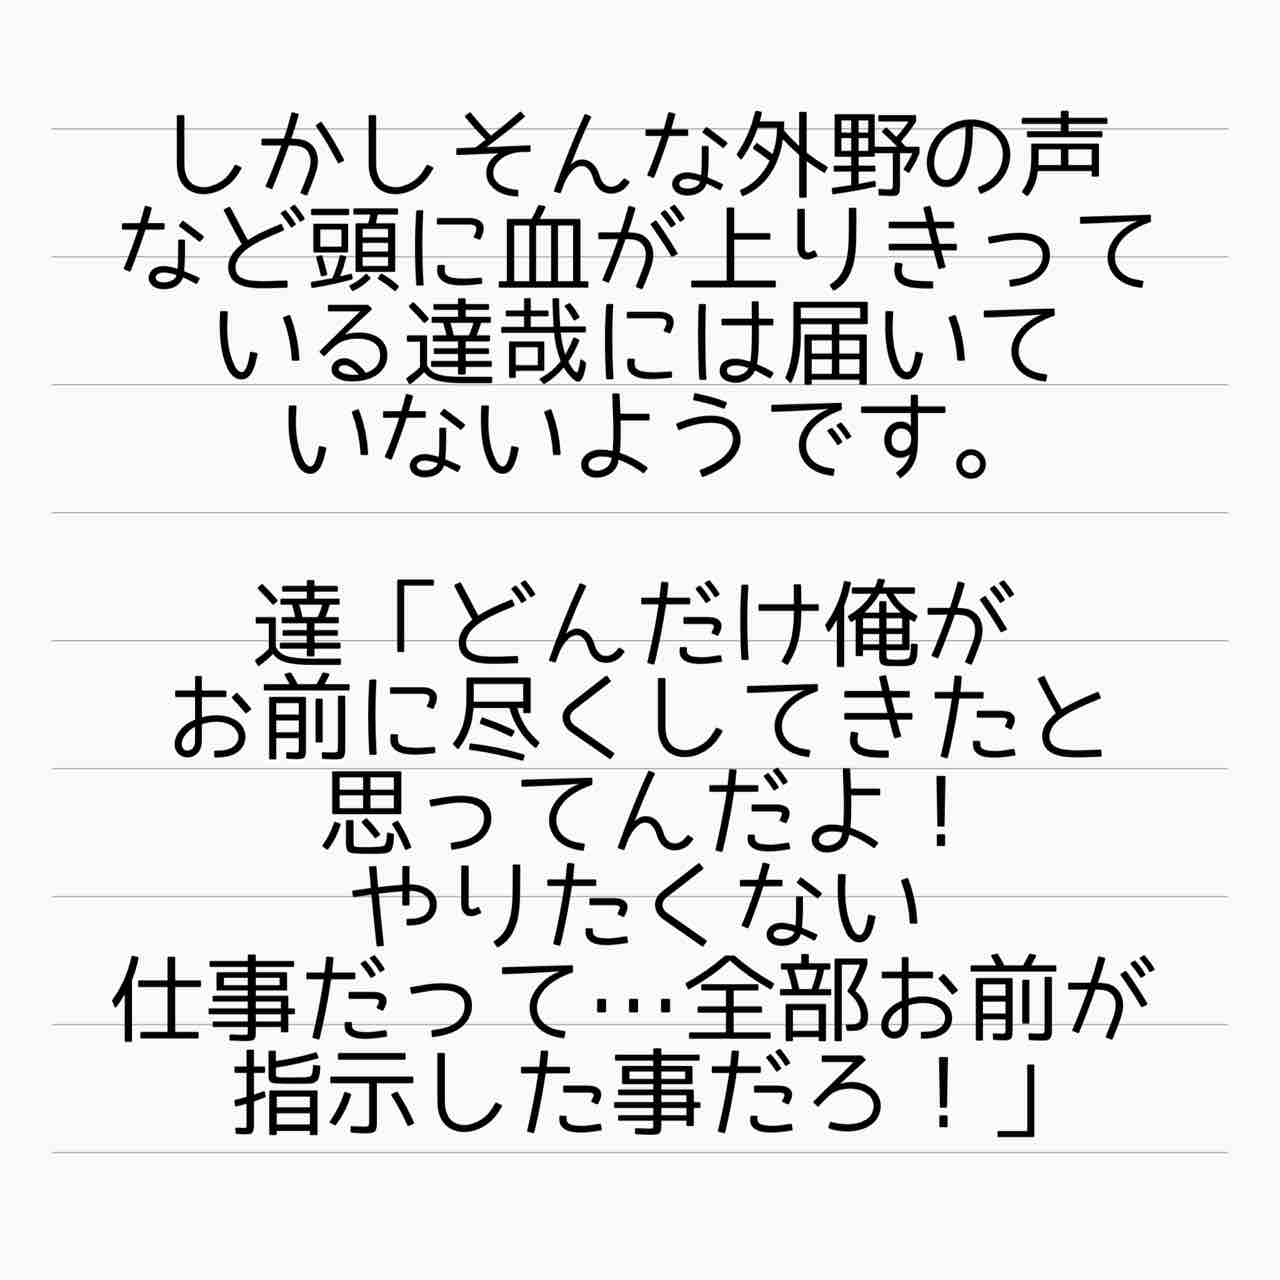 しかしそんな外野の声
など頭に血が上りきって
いる達哉には届いて
いないようです。
達「どんだけ俺が
お前に尽くしてきたと
思ってんだよ！
やりたくない
仕事だって…全部お前が
指示した事だろ！」